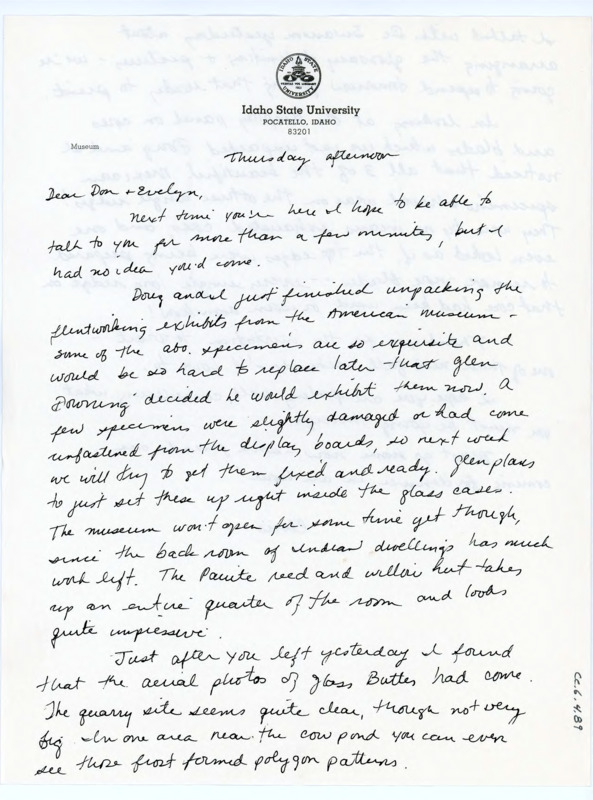 IDAHO STATE UNIVERSITY
Idaho State University
POCATELLO, IDAHO
83201
Museum
Thursday afternoon
Dear Don + Evelyn,
Next time you're here I hope to be able to
talk to you for more than a few minutes, but I
had no idea you'd come.
Doug and I just finished unpacking the
flintworking exhibits from the American museum -
some of the abo. specimens are so exquisite and
would be so hard to replace later that Glen
Downing decided he would exhibit them now. A
few specimens were slightly damaged or had come
unfastened from the display boards, so next week
we will try to get them fixed and ready. Glen plans
to just set these up right inside the glass cases.
The museum won't open for some time yet though,
since the back room of Indian dwellings has much
work left. The Paiute reed and willow hut takes
up an entire quarter of the room and looks
quite impressive.
Just after you left yesterday I found
that the aerial photos of Glass Buttes had come.
The quarry site seems quite clear, though not very
big. In one area near the cow pond you can even
see those frost formed polygon patterns.
CC.6.4.89